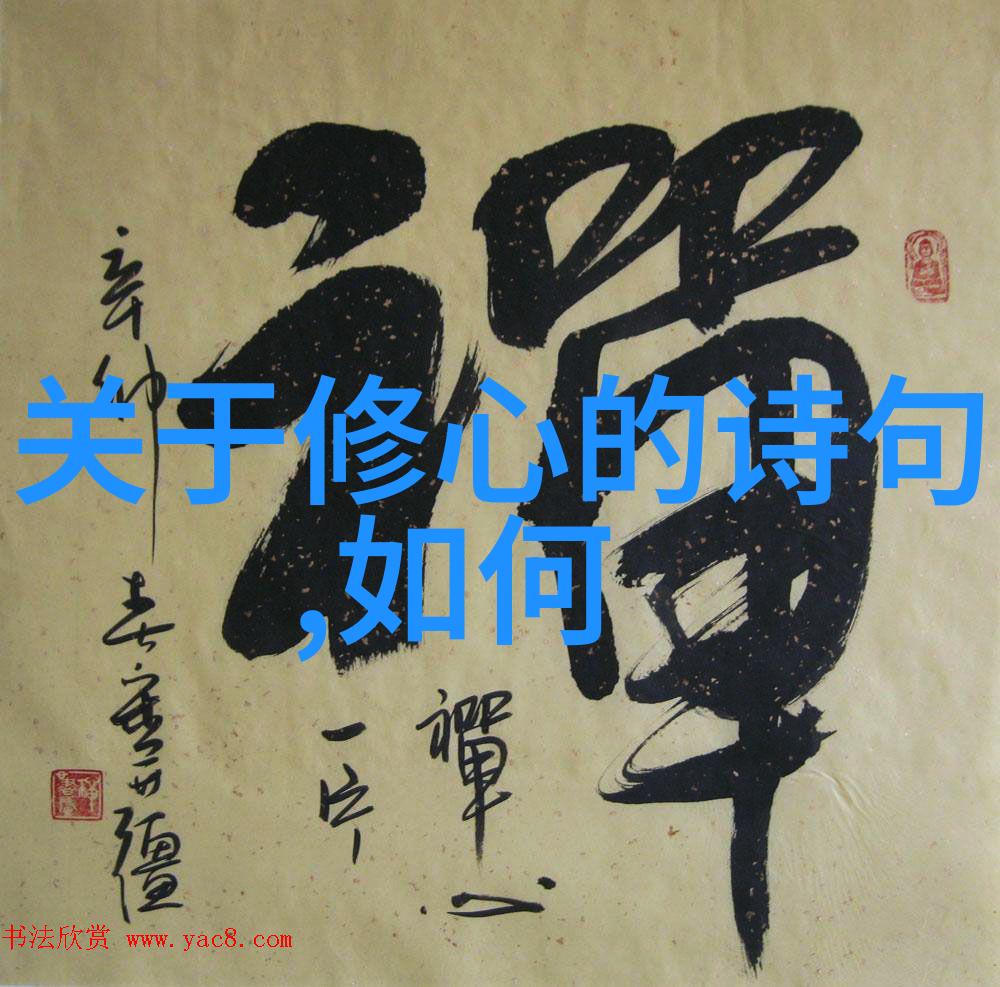 禪
关于修心的诗句
,如何
禪心
一片
辛卯春
书法欣赏 www.yac8.com